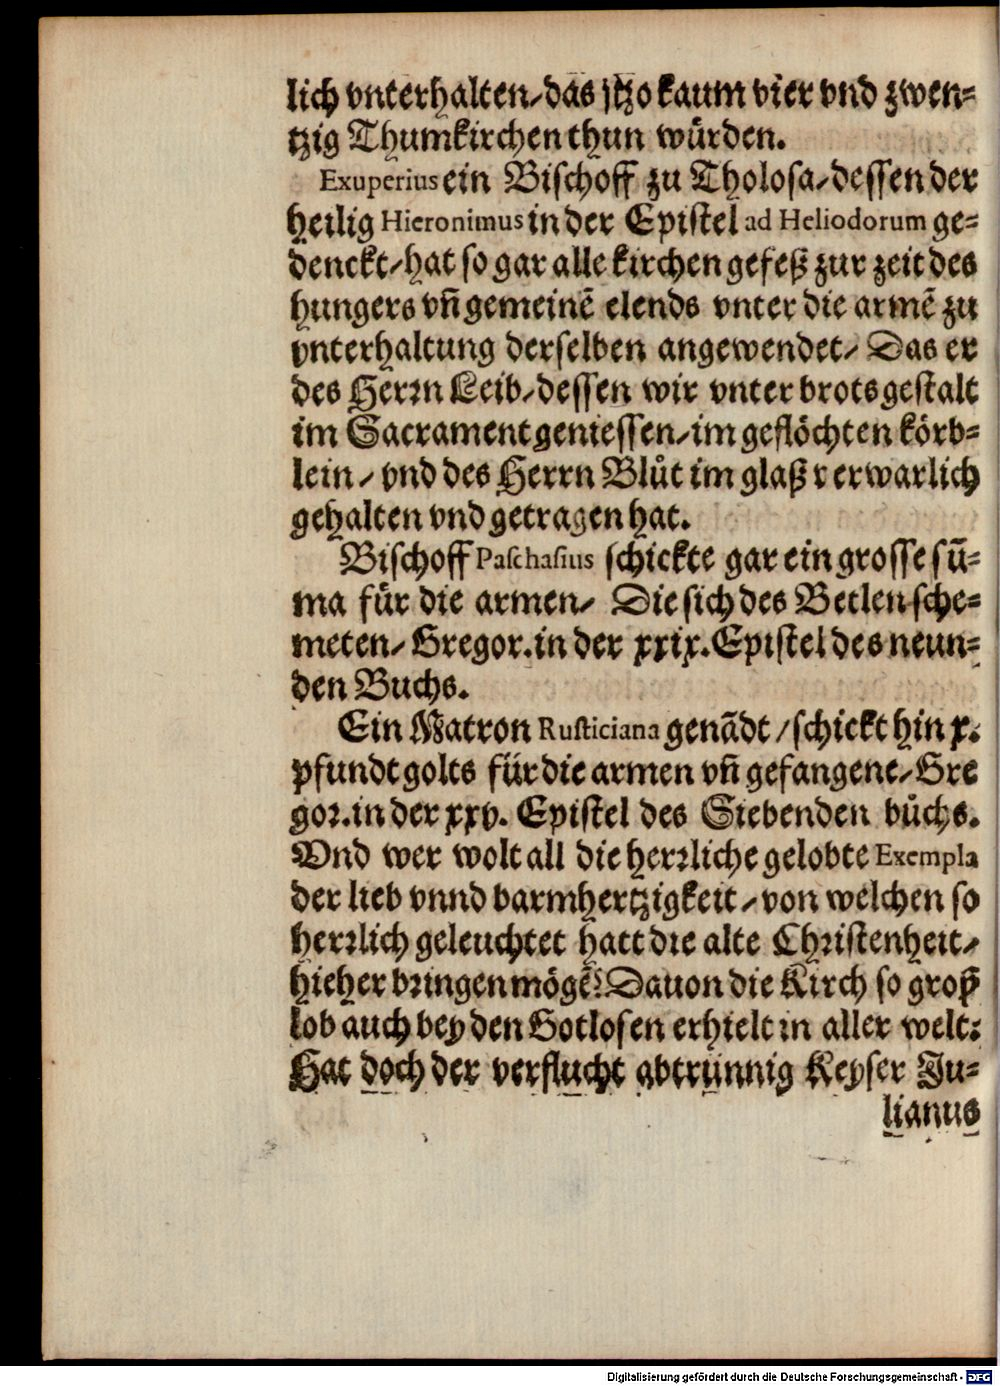 lich vnterhalten/das jtzo kaum vier vnd zwen-
tzig Thumkirchen thun würden.
Exuperius ein Bischoff zu Tholosa/dessen der
heilig Hieronimus in der Epistel ad Heliodorum ge-
denckt/hat so gar alle kirchen gefeß zur zeit des
hungers vñ gemeinẽ elends vnter die armẽ zu
vnterhaltung derselben angewendet/ Das er
des Herrn Leib/dessen wir vnter brots gestalt
im Sacrament geniessen/im geflöchten körb-
lein/ vnd des Herrn Blůt im glaß r erwarlich
gehalten vnd getragen hat.
Bischoff Paschasius schickte gar ein grosse sũ-
ma für die armen/ Die sich des Betlen sche-
meten/Gregor.in der xxix.Epistel des neun-
den Buchs.
Ein Matron Rusticiana genãdt /schickt hin x.
pfundt golts für die armen vñ gefangene/Gre
gor.in der xxv. Epistel des Siebenden bůchs.
Vnd wer wolt all die herrliche gelobte Exempla
der lieb vnnd barmhertzigkeit/von welchen so
herrlich geleuchtet hatt die alte Christenheit/
hieher bringen mögẽ? Dauon die Kirch so groß
lob auch bey den Gotlosen erhielt in aller welt:
Hat doch der verflucht abtrünnig Keyser Ju-
lianus
Digitalisierung gefördert durch die Deutsche Forschungsgemeinschaft - DFG